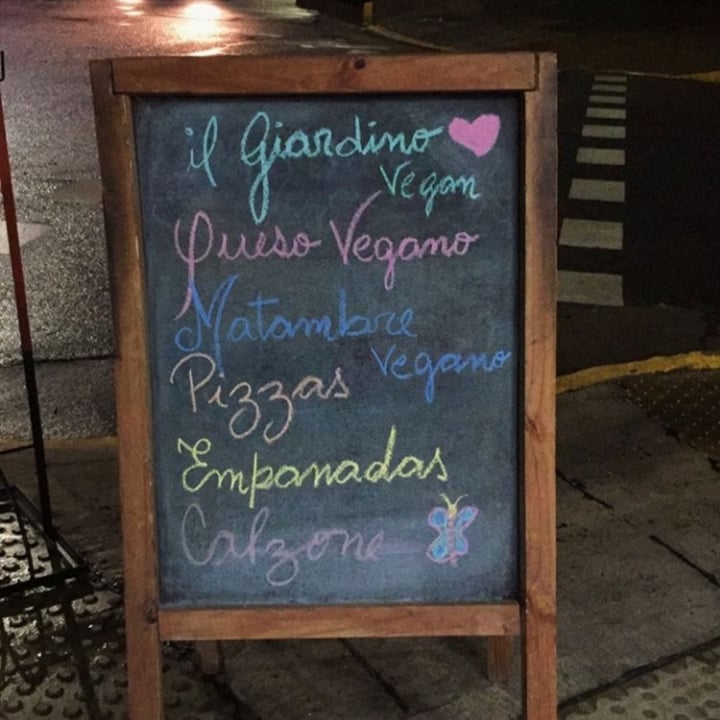 il Giardino
Vegan
Queso Vegano
Matambre
Vegano
Pizzas
Empanadas
Calzone